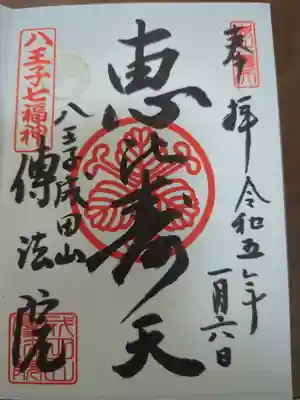 奉拝 令和五年
一月六日
恵比寿天
八王子成田山
傳法院
八王子七福神